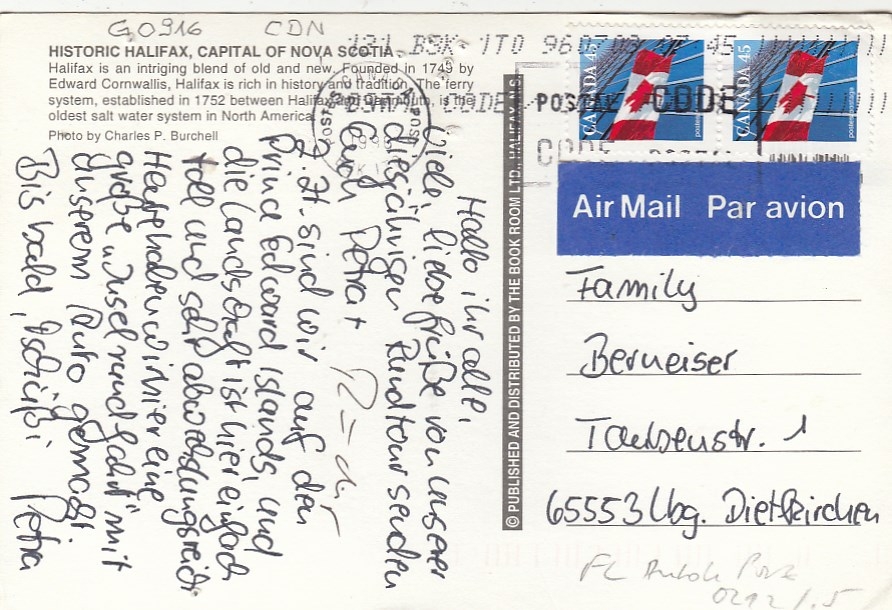 G0916 CDN
HISTORIC HALIFAX, CAPITAL OF NOVA SCOTIA
Halifax is an intriguing blend of old and new. Founded in 1749 by
Edward Cornwallis, Halifax is rich in history and tradition. The ferry
system, established in 1752 between Halifax and Dartmouth, is the
oldest salt water system in North America.
Photo by Charles P. Burchell
POSTAL CODE
CODE POSTAL
CANADA 45
CANADA 45
Air Mail Par avion
© PUBLISHED AND DISTRIBUTED BY THE BOOK ROOM LTD., HALIFAX, N.S.
Hallo ihr alle,
viele, liebe Grüße von unserer
diesjährigen Rundtour senden
Euch Petra +
z. Zt. sind wir auf den
Prince Edward Islands, und
die Landschaft ist hier einfach
toll und sehr abwechslungsreich
Heute haben wir hier eine
große "Inselrundfahrt" mit
unserem Auto gemacht.
Bis bald, Tschüßi Petra
Family
Berneiser
Taubenstr. 1
65553 Lbg. Dietkirchen